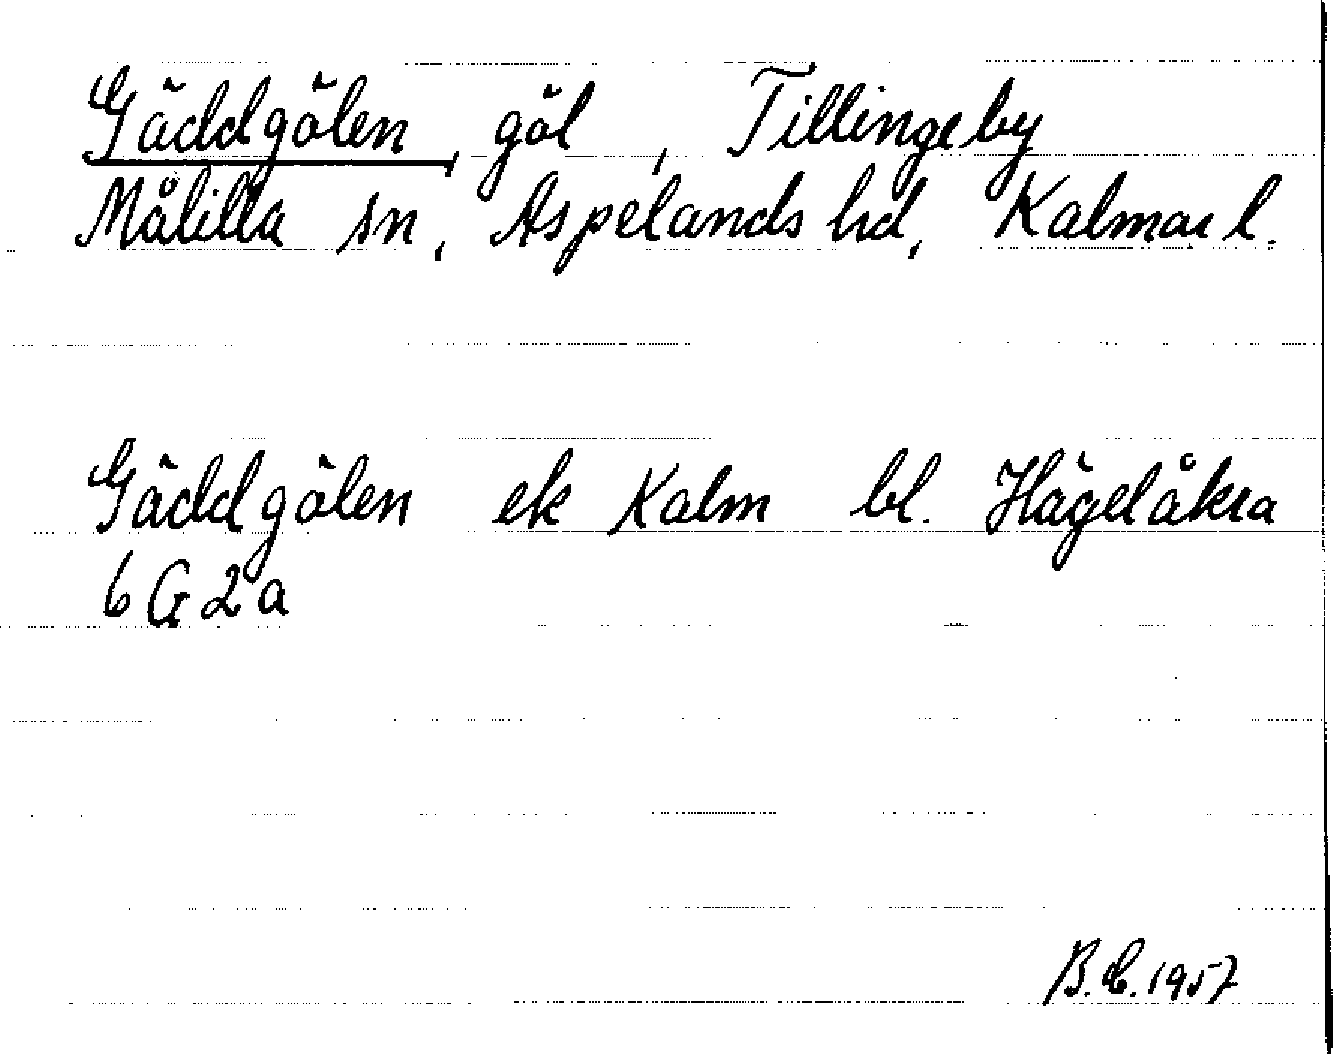 Gäddgölen, göl, Tillingeby
Målilla sn, Aspelands hd, Kalmar l.
Gäddgölen ek Kalm bl. Hägelåkra
6 G 2 a
B.C. 1957